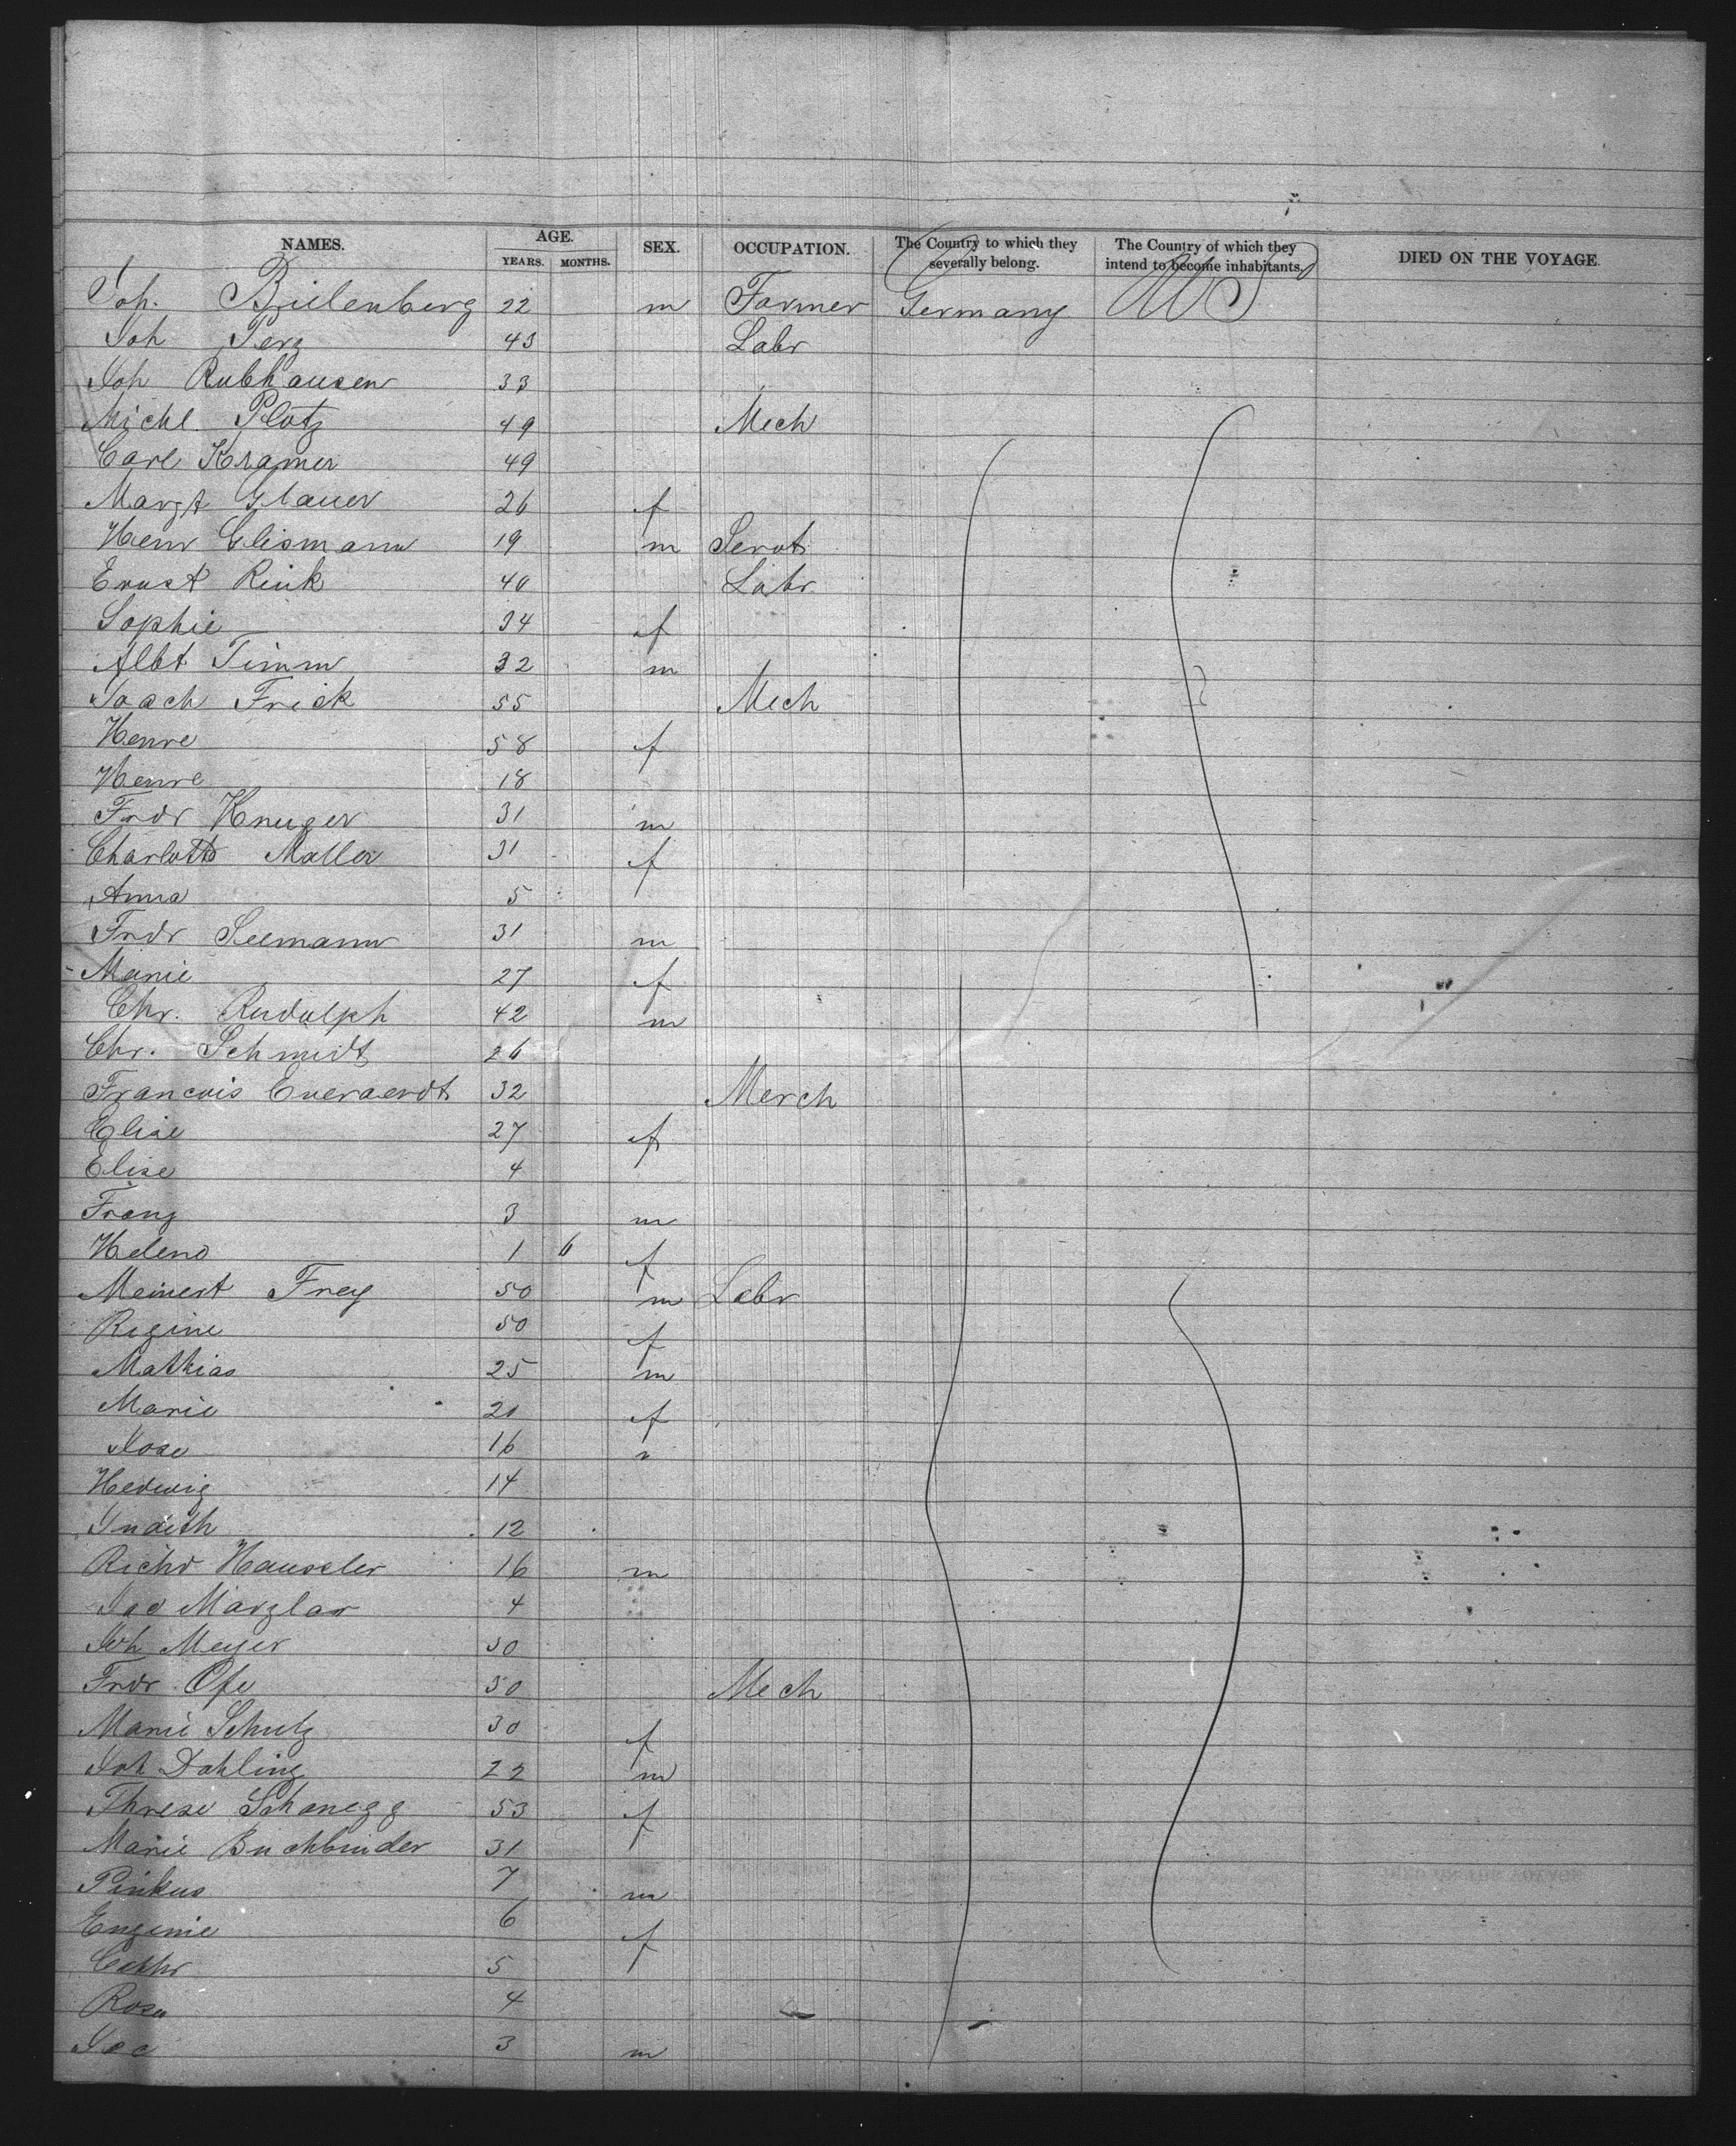 NAMES. AGE. SEX. OCCUPATION. The Country to which they severally belong. The Country of which they intend to become inhabitants. DIED ON THE VOYAGE.
YEARS. MONTHS.
Joh. Bielenberg 22 m Farmer Germany U S
Joh Perz 43 Labr
Joh Rubhausen 33
Michl. Plotz 49 Mech
Carl Kramer 49
Margt Glauer 26 f
Henr Glismann 19 m Servt
Ernst Rink 40 Labr
Sophie 34 f
Albt Timm 32 m
Joach Frick 55 Mech
Henre 58 f
Henre 18
Fredr Kruger 31 m
Charlotte Moller 31 f
Anna 5
Fredr Seemann 31 m
Marie 27 f
Chr. Rudolph 42 m
Chr. Schmidt 26
Francois Everaerdt 32 Merch
Elise 27 f
Elise 4
Franz 3 m
Helene 1 6 f
Meinert Frey 50 m Labr
Regine 50 f
Mathias 25 m
Marie 20 f
Rosa 16
Hedwig 14
Judith 12
Richd Hauseler 16 m
Jac 4
Joh Meyer 30
Fredr Ofe 30 Mech
Marie Schulz 30 f
Joh Dahling 22 m
Threse Schanegg 53 f
Marie Buchbinder 31
Pinkus 7 m
Eugenie 6 f
Cathr 5
Rosa 4
Jac 3 m